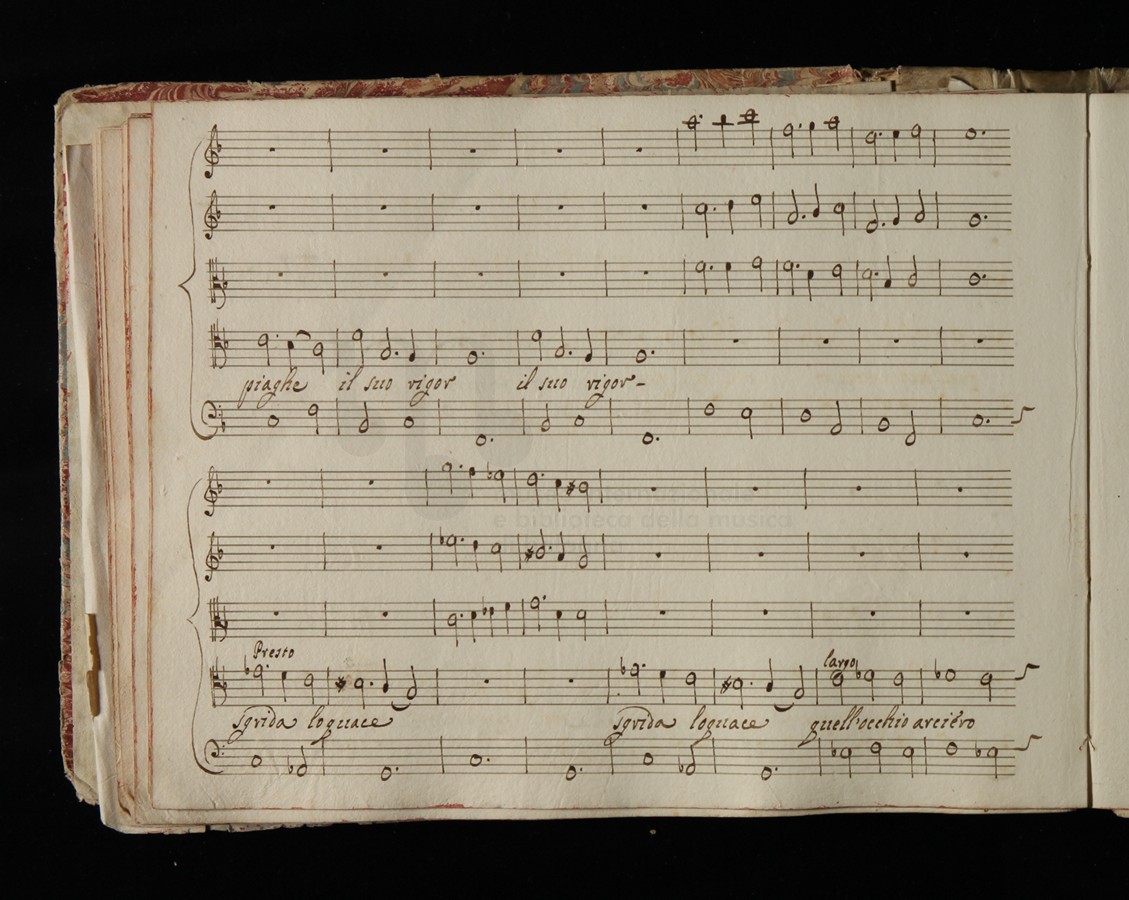 piaghe il suo rigor il suo rigor-
Presto
largo
sgrida loquace sgrida loquace quell'occhio arciero
e biblioteca della musica